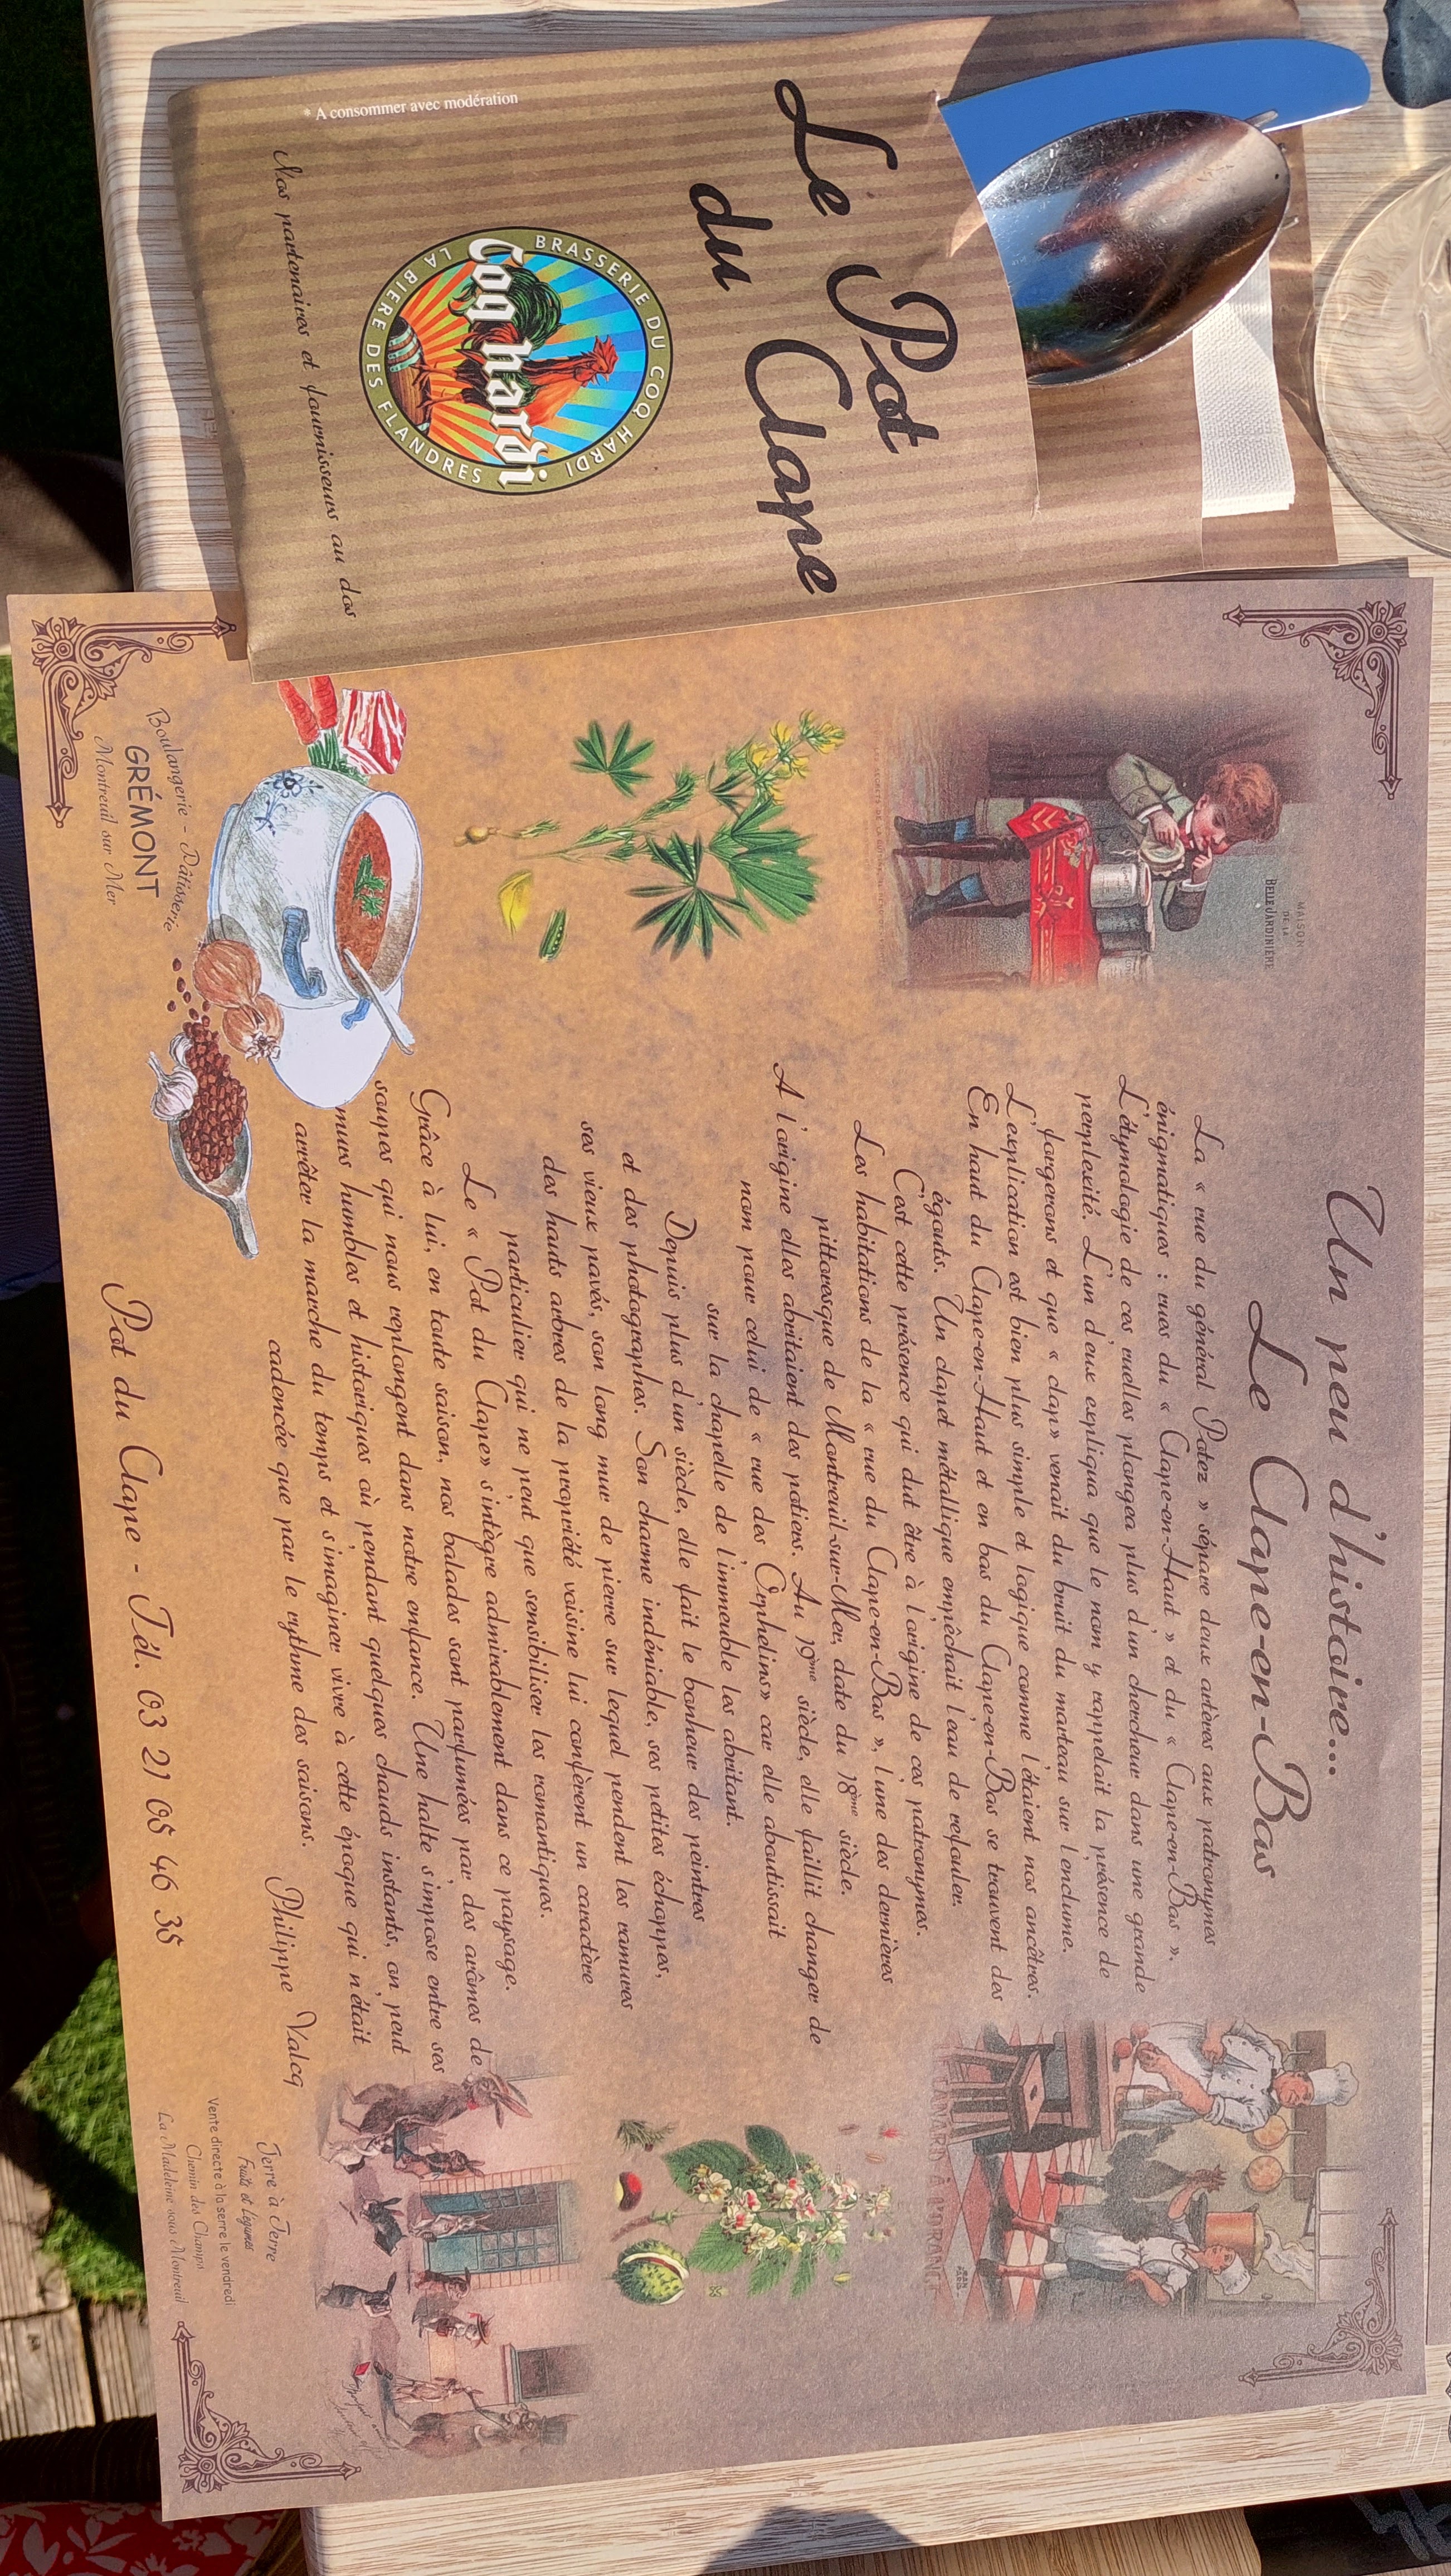 Le Pot
du Clape
BRASSERIE DU COQ HARDI
Coq hardi
LA BIERE DES FLANDRES
* A consommer avec modération
Nos partenaires et fournisseurs au dos
Un peu d'histoire...
Le Clape-en-Bas
MAISON
DE LA
BELLE JARDINIÈRE
La « rue du général Potez » sépare deux artères aux patronymes
énigmatiques : rues du « Clape-en-Haut » et du « Clape-en-Bas ».
L'étymologie de ces ruelles plongea plus d'un chercheur dans une grande
perplexité. L'un d'eux expliqua que le nom y rappelait la présence de
forgerons et que « clap» venait du bruit du marteau sur l'enclume.
L'explication est bien plus simple et logique comme l'étaient nos ancêtres.
En haut du Clape-en-Haut et en bas du Clape-en-Bas se trouvent des
égouts. Un clapet métallique empêchait l'eau de refouler.
C'est cette présence qui dut être à l'origine de ces patronymes.
Les habitations de la « rue du Clape-en-Bas », l'une des dernières
pittoresque de Montreuil-sur-Mer, date du 18ème siècle.
A l'origine elles abritaient des potiers. Au 19ème siècle, elle faillit changer de
nom pour celui de « rue des Orphelins» car elle aboutissait
sur la chapelle de l'immeuble les abritant.
Depuis plus d'un siècle, elle fait le bonheur des peintres
et des photographes. Son charme indéniable, ses petites échoppes,
ses vieux pavés, son long mur de pierre sur lequel pendent les ramures
des hauts arbres de la propriété voisine lui confèrent un caractère
particulier qui ne peut que sensibiliser les romantiques.
Le « Pot du Clape» s'intègre admirablement dans ce paysage.
Grâce à lui, en toute saison, nos balades sont parfumées par des arômes de
soupes qui nous replongent dans notre enfance. Une halte s'impose entre ses
murs humbles et historiques où pendant quelques chauds instants, on peut
arrêter la marche du temps et s'imaginer vivre à cette époque qui n'était
cadencée que par le rythme des saisons.
Philippe Valcq
CANARD À L'ORANGE
Boulangerie - Pâtisserie
GRÉMONT
Montreuil sur Mer
Pot du Clape - Tél. 03 21 05 46 38
Terre à Terre
Fruits et Légumes
Vente directe à la serre le vendredi
Chemin des Champs
La Madeleine sous Montreuil